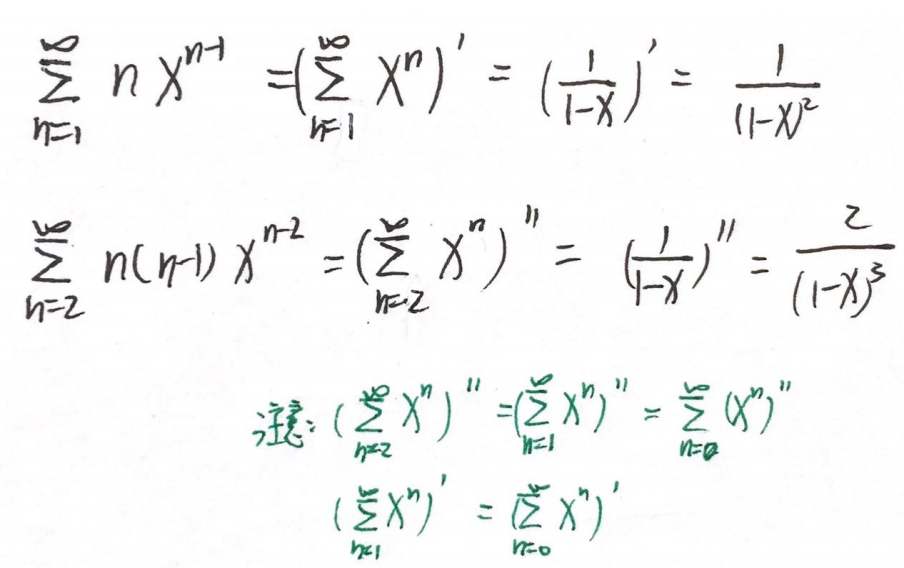 ∑_{n=1}^{∞} n x^{n-1} = (∑_{n=1}^{∞} x^n)' = (1/(1-x))' = 1/(1-x)^2
∑_{n=2}^{∞} n(n-1) x^{n-2} = (∑_{n=2}^{∞} x^n)'' = (1/(1-x))'' = 2/(1-x)^3
注意: (∑_{n=2}^{∞} x^n)'' = (∑_{n=1}^{∞} x^n)'' = ∑_{n=0}^{∞} (x^n)''
(∑_{n=1}^{∞} x^n)' = (∑_{n=0}^{∞} x^n)'